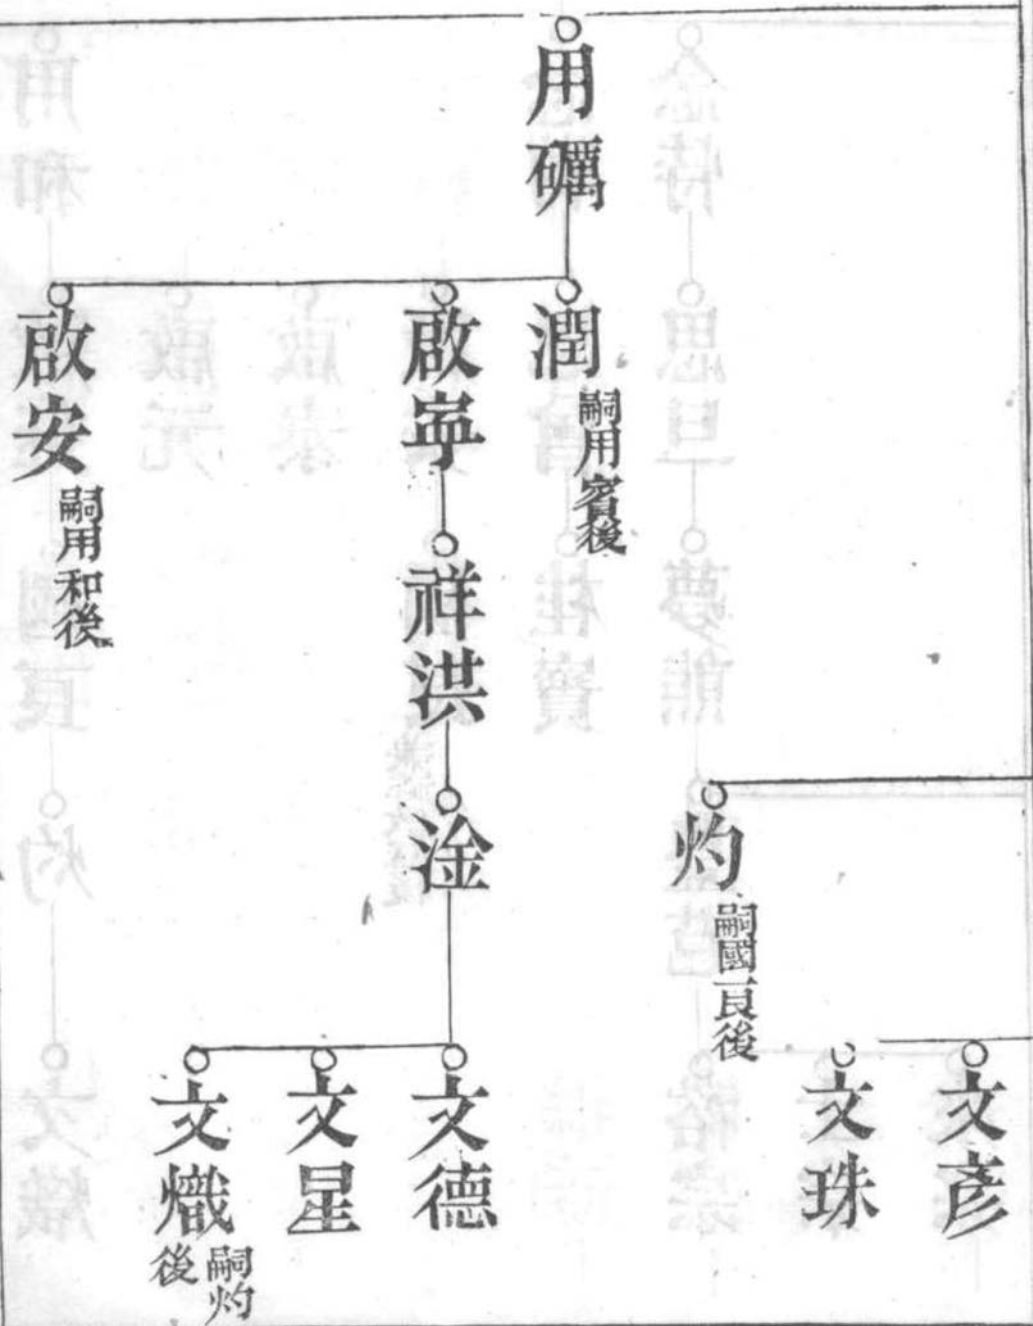 用礪
潤
嗣用賓後
啟寧
啟安
嗣用和後
祥洪
灼
嗣國良後
淦
文彥
文珠
文德
文星
文熾
嗣灼
後